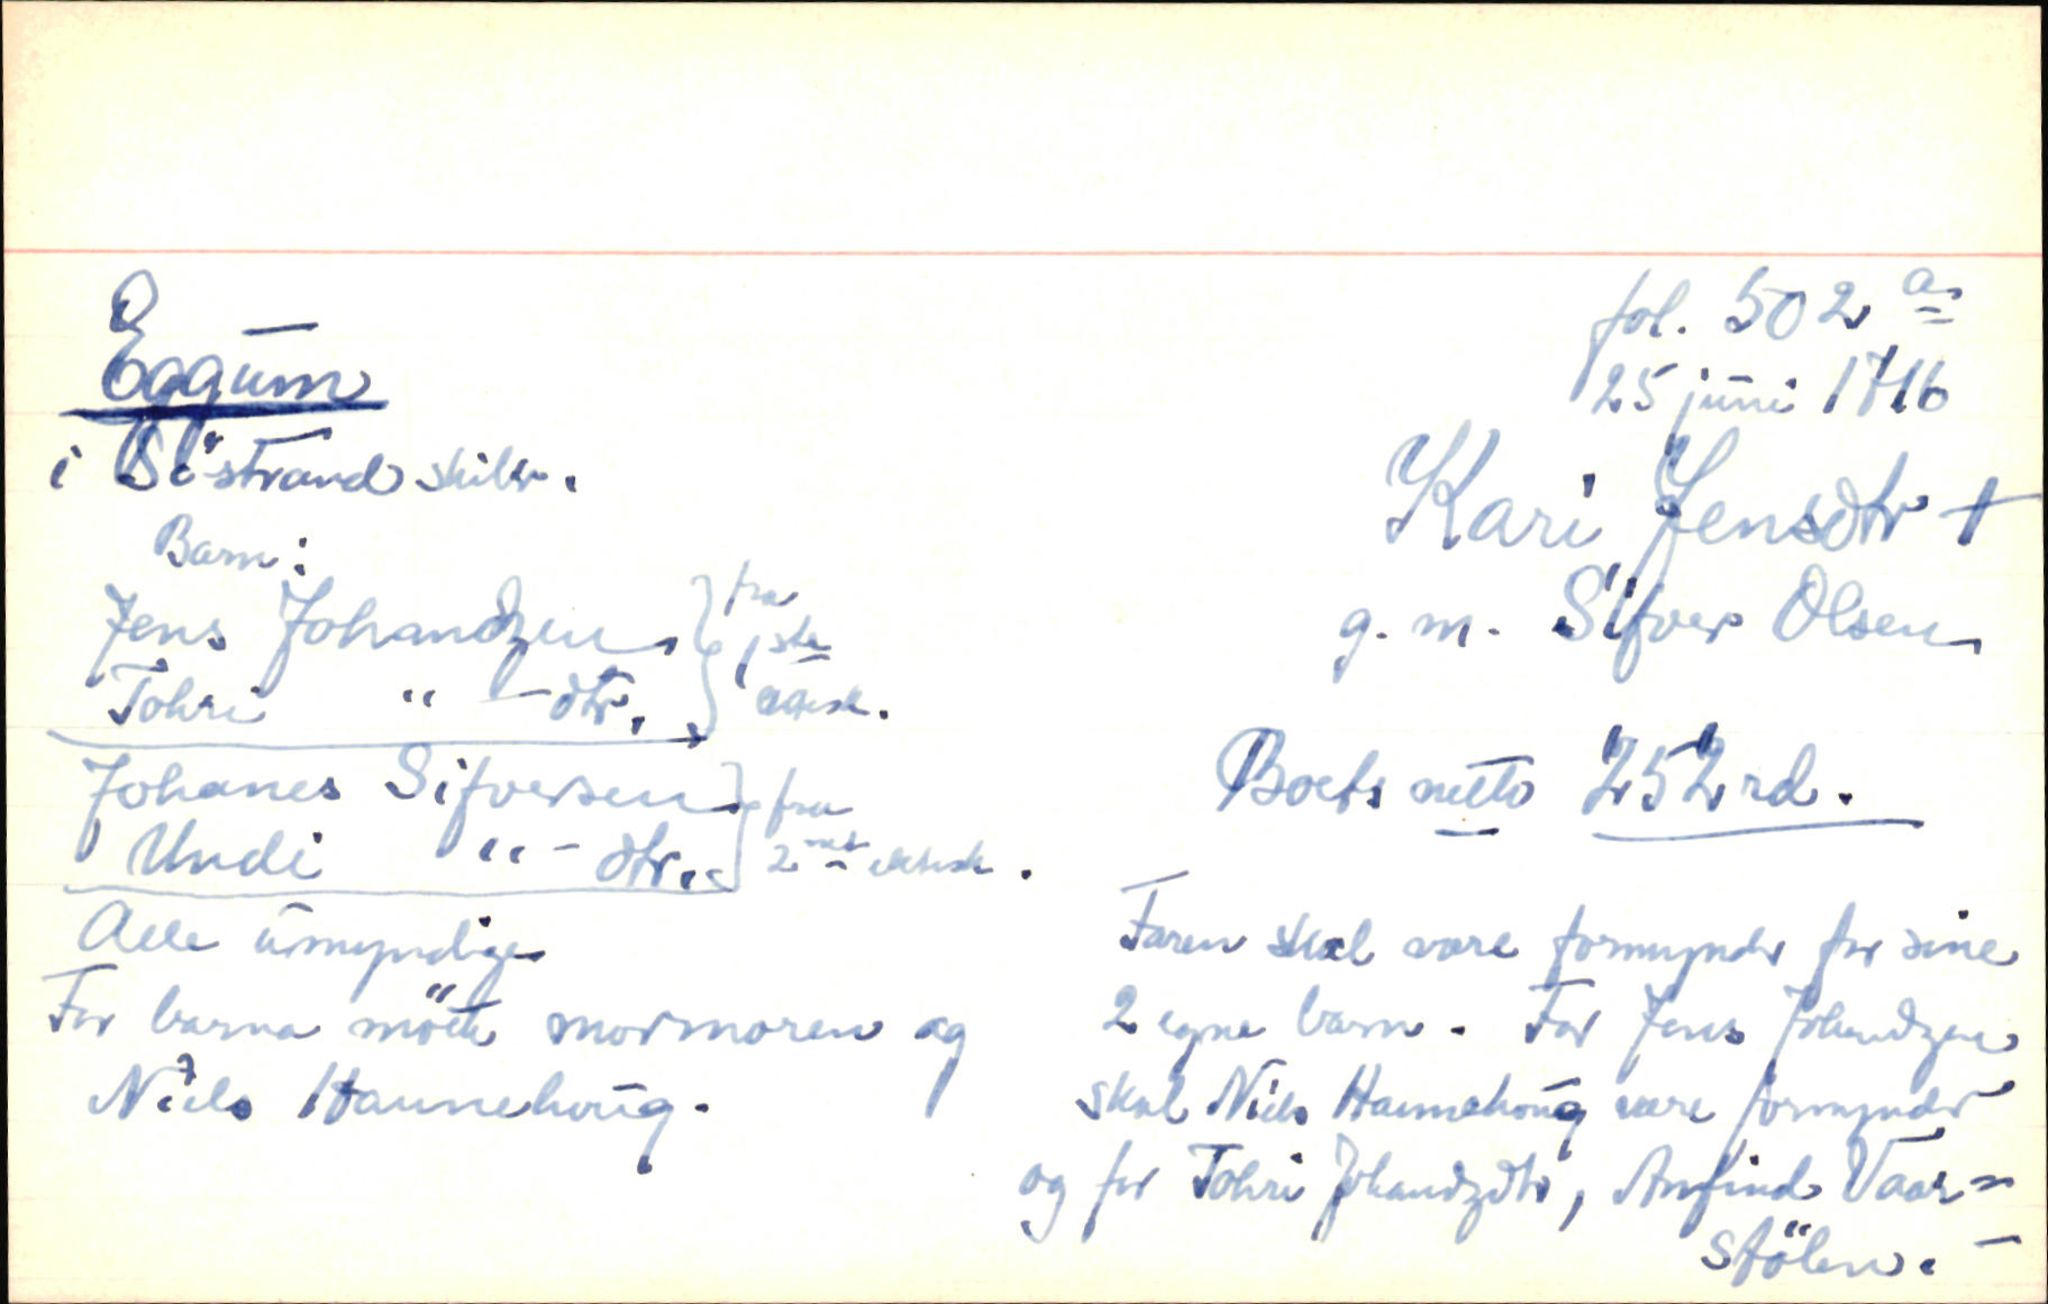 Eggum
i Söstrand skibr.
Barn:
Jens Johandzen
Tohri " - dtr.
fra
1ste
ektesk.
Johanes Sifversen
Undi " - dtr.
fra
2net ektesk.
Alle umyndige
For barna mötte mormoren og
Niels Haunehoug.
fol. 502 a
25 juni 1716
Kari Jensdtr †
g. m. Sifver Olsen
Boets netto 252 rd.
Faren skal være formynder for sine
2 egne barn. For Jens Johandzen
skal Niels Haunehoug være formynder
og for Tohri Johandzdtr, Anfind Vaar=
stölen. -